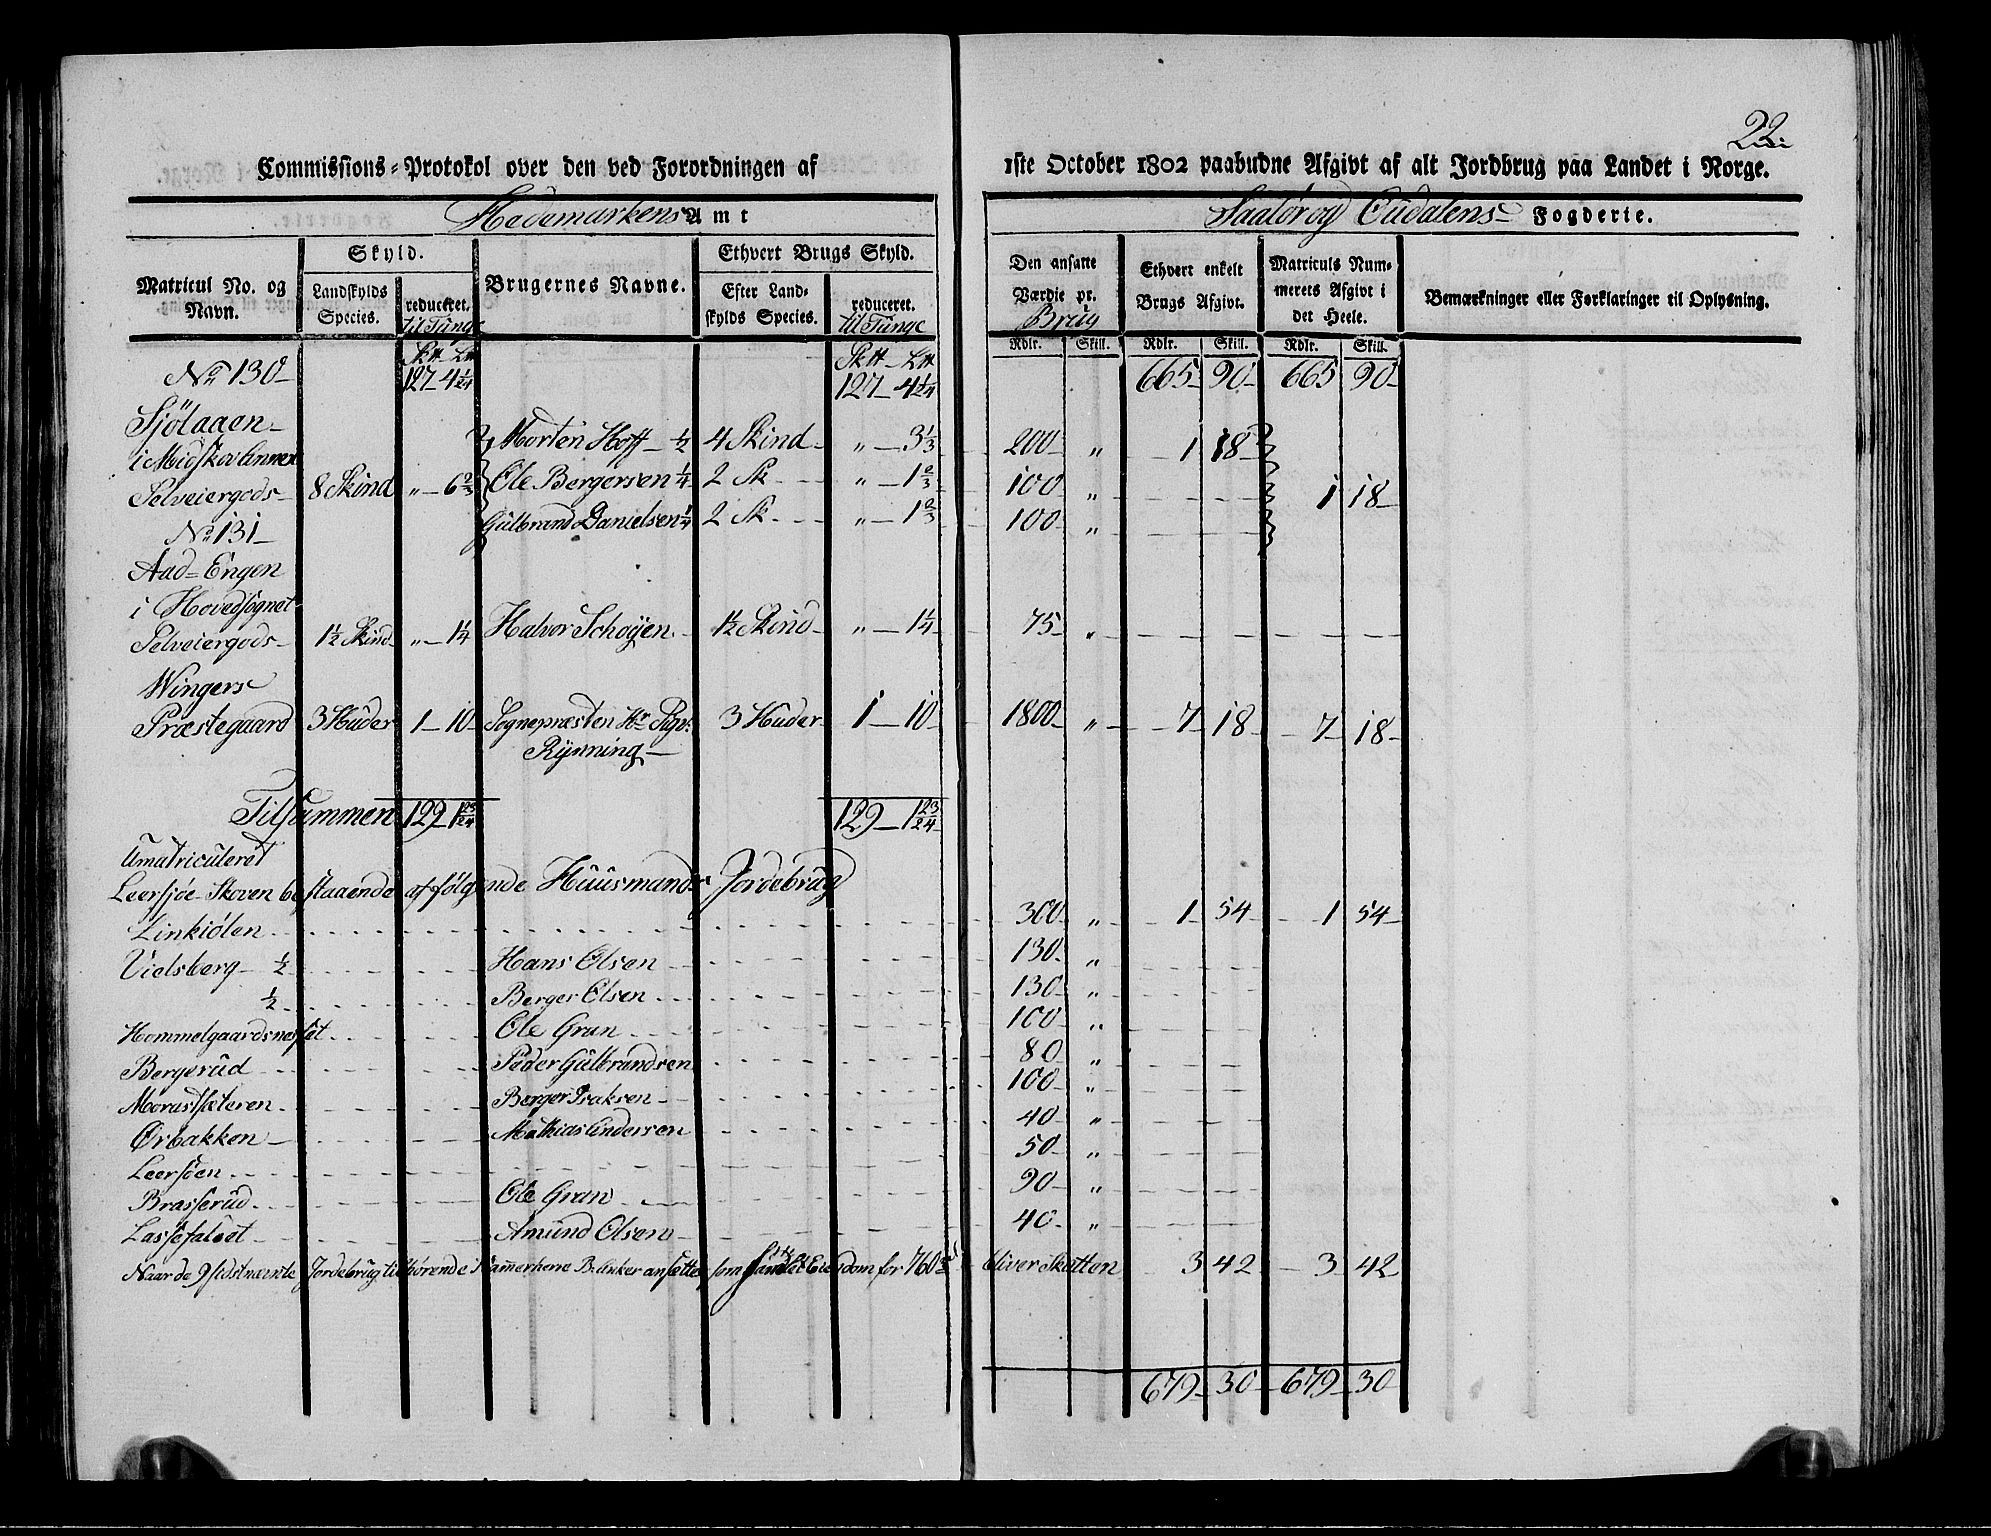 22
Commissions=Protokol over den ved Forordningen af 1ste October 1802 paabudne Afgivt af alt Jordbrug paa Landet i Norge.
Hedemarkens Amt
Soløer og Oudalens Fogderie.
Matricul No. og Navn.
Skyld.
Landskylds Species.
reduceret. til Tunge
Brugernes Navne.
Ethvert Brugs Skyld.
Efter Landskylds Species.
reduceret. til Tunge
Den ansatte Værdie pr. Brug
Ethvert enkelt Brugs Afgivt.
Matriculs Nummerets Afgivt i det Heele.
Bemærkninger eller Forklaringer til Oplysning.
Rdlr. Skill. Rdlr. Skill. Rdlr. Skill.
No 130 127 4 1/24 127 4 1/24 665 90 665 90
Sjölaaen
i Midskov Annex Morten Hoff 1/2 4 Skind „ 3 1/3 200 „ 1 18
Selveiergods 8 Skind „ 6 2/3 Ole Bergersen 1/4 2 Sk „ 1 2/3 100 „ 1 18
No 131 Gulbrand Danielsen 1/4 2 Sk „ 1 2/3 100 „
Aad=Engen
i Hovedsognet
Selveiergods 1 1/2 Skind „ 1 1/4 Halvor Schoÿen 1 1/2 Skind „ 1 1/4 75 „
Wingers
Præstegaard 3 Huder 1 10 Sognepræsten Hr 3 Huder 1 10 1800 „ 7 18 7 18
Rÿnning
Tilsammen 129 1 23/24 129 1 23/24
Umatriculeret
Leersjøe Skoven bestaaende af følgende Huusmands Jordebrug
Linkiölen 300 „ 1 54 1 54
Vielsberg 1/2 Hans Olsen 130 „
1/2 Berger Olsen 130 „
Hommelgaardsnæset Ole Gran 100 „
Bergerud Peder Gulbrandsen 80 „
Morastsæteren Berger Isaksen 100 „
Ørbakken Mathias Andersen 40 „
Leersöen 50 „
Brasserud Ole Gran 90 „
Lassefaleet Amund Olsen 40 „
Naar de 9 sidstnævnte Jordebrug tilhørende Kammerherre Anker ansættes som samlet Eiendom for 760 rd bliver Skatten 3 42 3 42
679 30 679 30